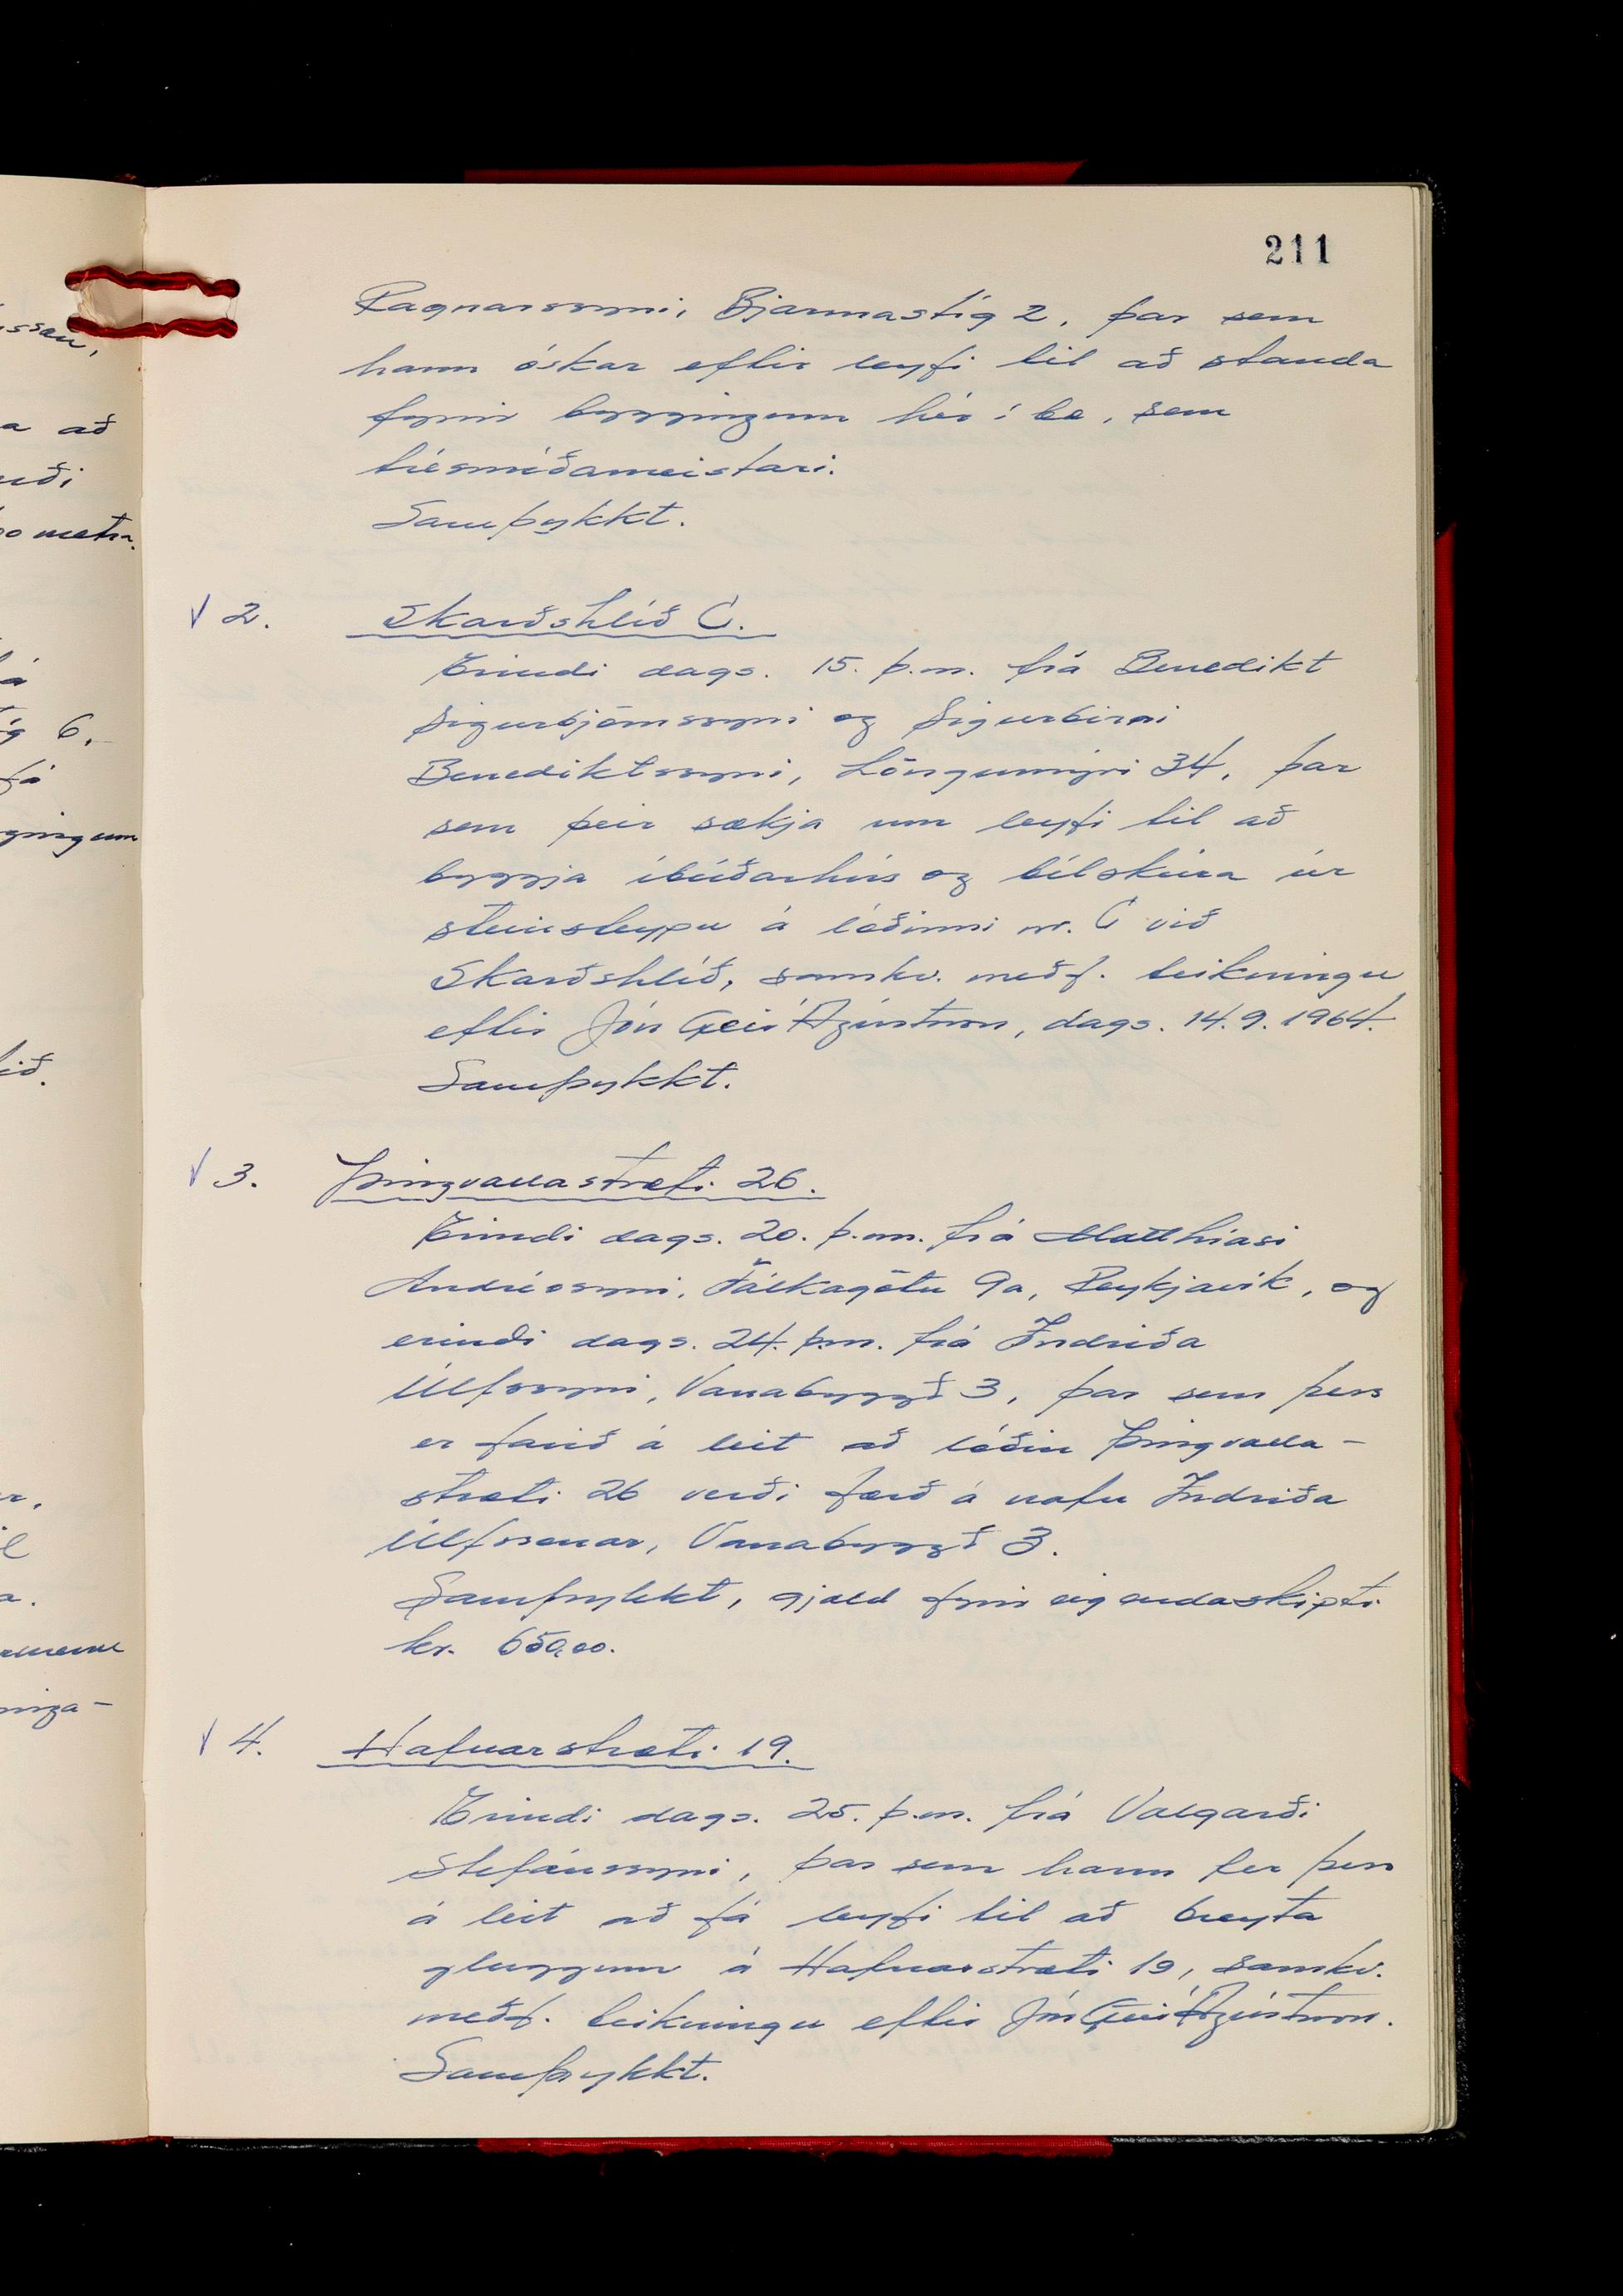 211
Ragnarssyni, Bjarmastíg 2, þar sem
hann óskar eftir leyfi til að standa
fyrir byggingum hér í bæ, sem
trésmíðameistari.
Samþykkt.
V 2. Skarðshlíð C.
Erindi dags. 15. þ.m. frá Benedikt
Sigurbjörnssyni og Sigurbirni
Benediktssyni, Löngumýri 34, þar
sem þeir sækja um leyfi til að
byggja íbúðarhús og bílskúra úr
steinsteypu á lóðinni nr. C við
Skarðshlíð, samkv. meðf. teikningu
eftir Jón Geir Ágústsson, dags. 14.9.1964.
Samþykkt.
V 3. Þingvallastræti 26.
Erindi dags. 20. þ.m. frá Matthíasi
Andréssyni, Fálkagötu 9a, Reykjavík, og
erindi dags. 24. þ.m. frá Indriða
Úlfssyni, Vanabyggð 3, þar sem þess
er farið á leit að lóðin Þingvalla-
stræti 26 verði færð á nafn Indriða
Úlfssonar, Vanabyggð 3.
Samþykkt, gjald fyrir eigendaskipti
kr. 650,00.
V 4. Hafnarstræti 19.
Erindi dags. 25. þ.m. frá Valgarði
Stefánssyni, þar sem hann fer þess
á leit að fá leyfi til að breyta
gluggum á Hafnarstræti 19, samkv.
meðf. teikningu eftir Jón Geir Ágústsson.
Samþykkt.